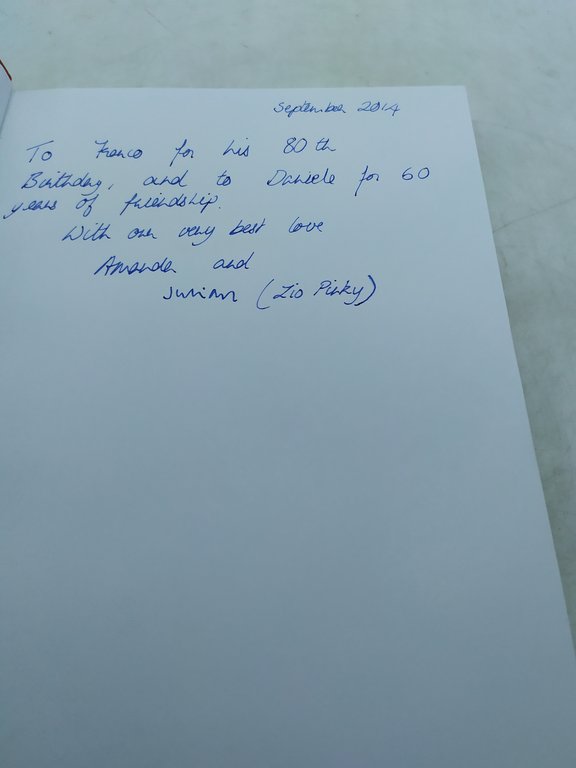 September 2014
To Franco for his 80th
Birthday, and to Daniele for 60
years of friendship.
With our very best love
Amanda and
Julian (Zio Pinky)